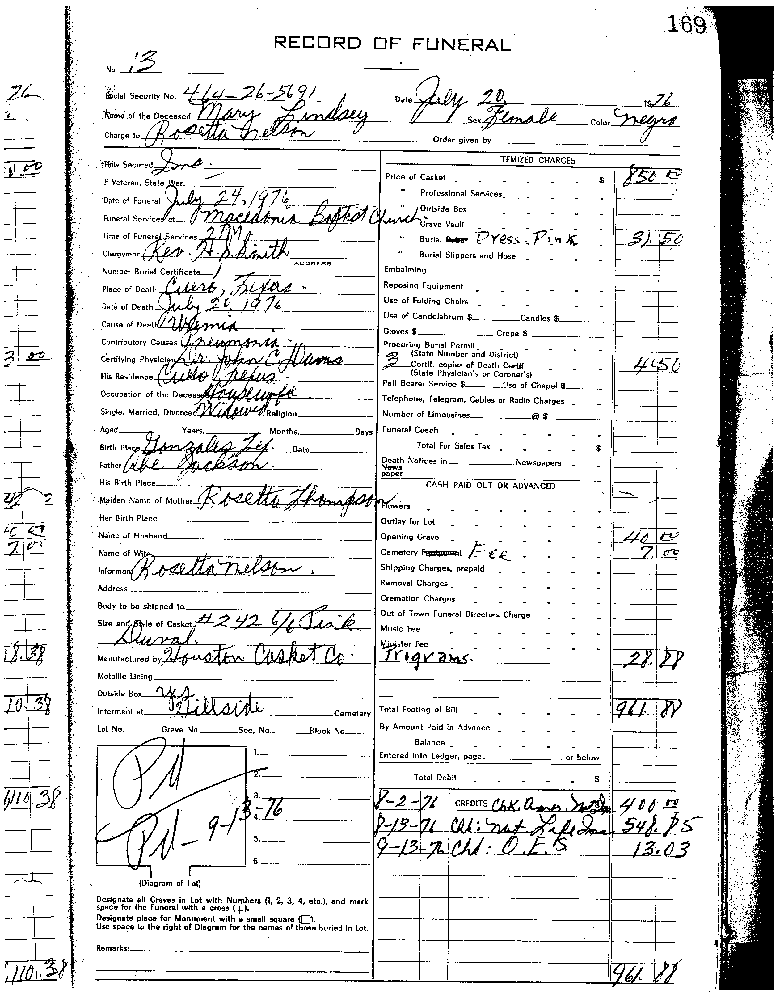 169
RECORD OF FUNERAL
No. 13
Social Security No. 464-26-5691 Date July 20 1976
Name of the Deceased Mary Lindsey Sex Female Color Negro
Charge to Rosetta Nelson Order given by
How Secured Ins.
If Veteran, State War
Date of Funeral July 24, 1976
Funeral Services at Macedonia Baptist Church
Time of Funeral Services 2 PM
Clergyman Rev. H. S. Smith
ADDRESS
Number Burial Certificate
Place of Death Cuero, Texas
Date of Death July 20, 1976
Cause of Death Uremia
Contributory Causes Pneumonia
Certifying Physician Dr. John C. Davis
His Residence Cuero Texas
Occupation of the Deceased Housewife
Single, Married, Divorced Widowed Religion
Aged Years, Months, Days
Birth Place Gonzales Tex. Date
Father Abe Jackson
His Birth Place
Maiden Name of Mother Rosetta Thompson
Her Birth Place
Name of Husband
Name of Wife
Informant Rosetta Nelson.
Address
Body to be shipped to
Size and Style of Casket #242 6/6 Pink
Duval
Manufactured by Houston Casket Co.
Metallic Lining
Outside Box yes
Interment at Hillside Cemetery
Lot No. Grave No. Sec. No. Block No.
1
2
3
4
5
6
Pd
Pd - 9-13-76
(Diagram of Lot)
Designate all Graves in Lot with Numbers (1, 2, 3, 4, etc.), and mark
space for the Funeral with a cross (+).
Designate place for Monument with a small square (□).
Use space to the right of Diagram for the names of those buried in Lot.
Remarks:
ITEMIZED CHARGES
Price of Casket $ 850 00
" Professional Services
" Outside Box
" Grave Vault
" Burial Dress - Pink 31 50
" Burial Slippers and Hose
Embalming
Reposing Equipment
Use of Folding Chairs
Use of Candelabrum $ Candles $
Gloves $ Crepe $
Procuring Burial Permit
(State Number and District)
3 Certif. copies of Death Certif 4 50
(State Physician's or Coroner's)
Pall Bearer Service $ Use of Chapel $
Telephone, Telegram, Cables or Radio Charges
Number of Limousines @ $
Funeral Coach
Total For Sales Tax $
Death Notices in Newspapers
News
paper
CASH PAID OUT OR ADVANCED
Flowers
Outlay for Lot
Opening Grave 40 00
Cemetery Fee 7 00
Shipping Charges, prepaid
Removal Charges
Cremation Charges
Out of Town Funeral Directors Charge
Music Fee
Minister Fee
Programs. 28 88
Total Footing of Bill 961 88
By Amount Paid in Advance
Balance
Entered into Ledger, page or below
Total Debit $
8-2-76 CREDITS Chk. Amer. Nat Ins 400 00
8-19-76 Chk: Nat. Life Ins 548.85
9-13-76 Chk: O.E.S. 13.03
961 88
76
18.38
10 38
110 38
110.38